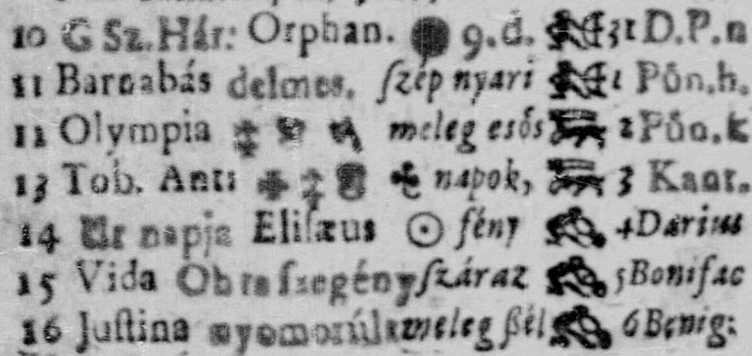 10 G Sz. Hár: Orphan. 9. d. 31 D. P. n
11 Barnabás delmes. ſzép nyari 1 Pün. h.
11 Olympia meleg esős 2 Pün. k
13 Tob. Anti napok, 3 Kant.
14 Ur napja Eliſæus fény 4 Darius
15 Vida Obra ſzegény ſzáraz 5 Bonifac
16 Juſtina nyomorúl meleg ßél 6 Benig: